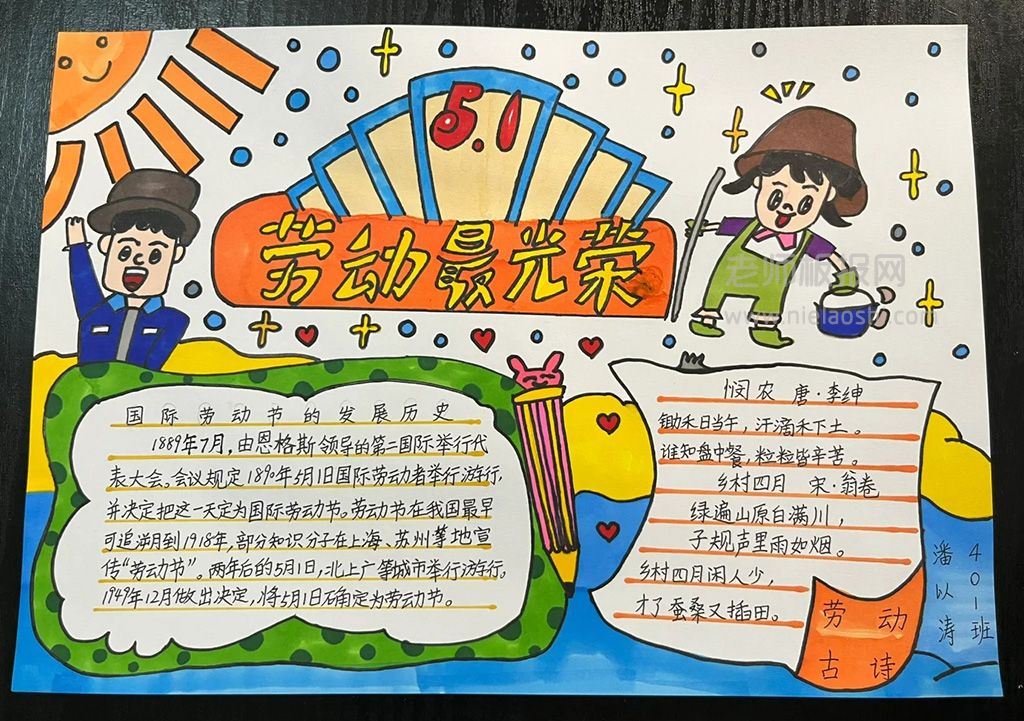 5.1
劳动最光荣
老师板报网
www.nielaoshi
国际劳动节的发展历史
1889年7月，由恩格斯领导的第二国际举行代
表大会。会议规定1890年5月1日国际劳动者举行游行，
并决定把这一天定为国际劳动节。劳动节在我国最早
可追溯到1918年，部分知识分子在上海、苏州等地宣
传“劳动节”。两年后的5月1日，北上广等城市举行游行。
1949年12月做出决定，将5月1日确定为劳动节。
悯农 唐·李绅
锄禾日当午，汗滴禾下土。
谁知盘中餐，粒粒皆辛苦。
乡村四月 宋·翁卷
绿遍山原白满川，
子规声里雨如烟。
乡村四月闲人少，
才了蚕桑又插田。
劳动
古诗
401班
潘以涛